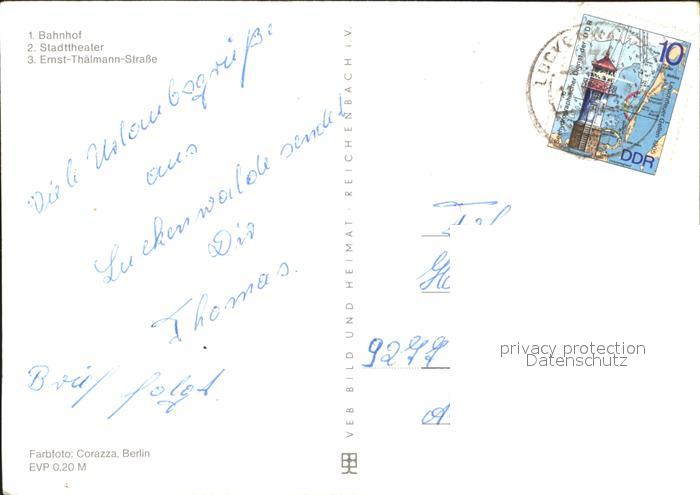 1. Bahnhof
2. Stadttheater
3. Ernst-Thälmann-Straße
Viele Urlaubsgrüße
aus
Luckenwalde sendet
Dir
Thomas.
Brief folgt.
Farbfoto: Corazza, Berlin
EVP 0,20 M
VEB BILD UND HEIMAT REICHENBACH i.V.
10
DDR
9277
privacy protection
Datenschutz